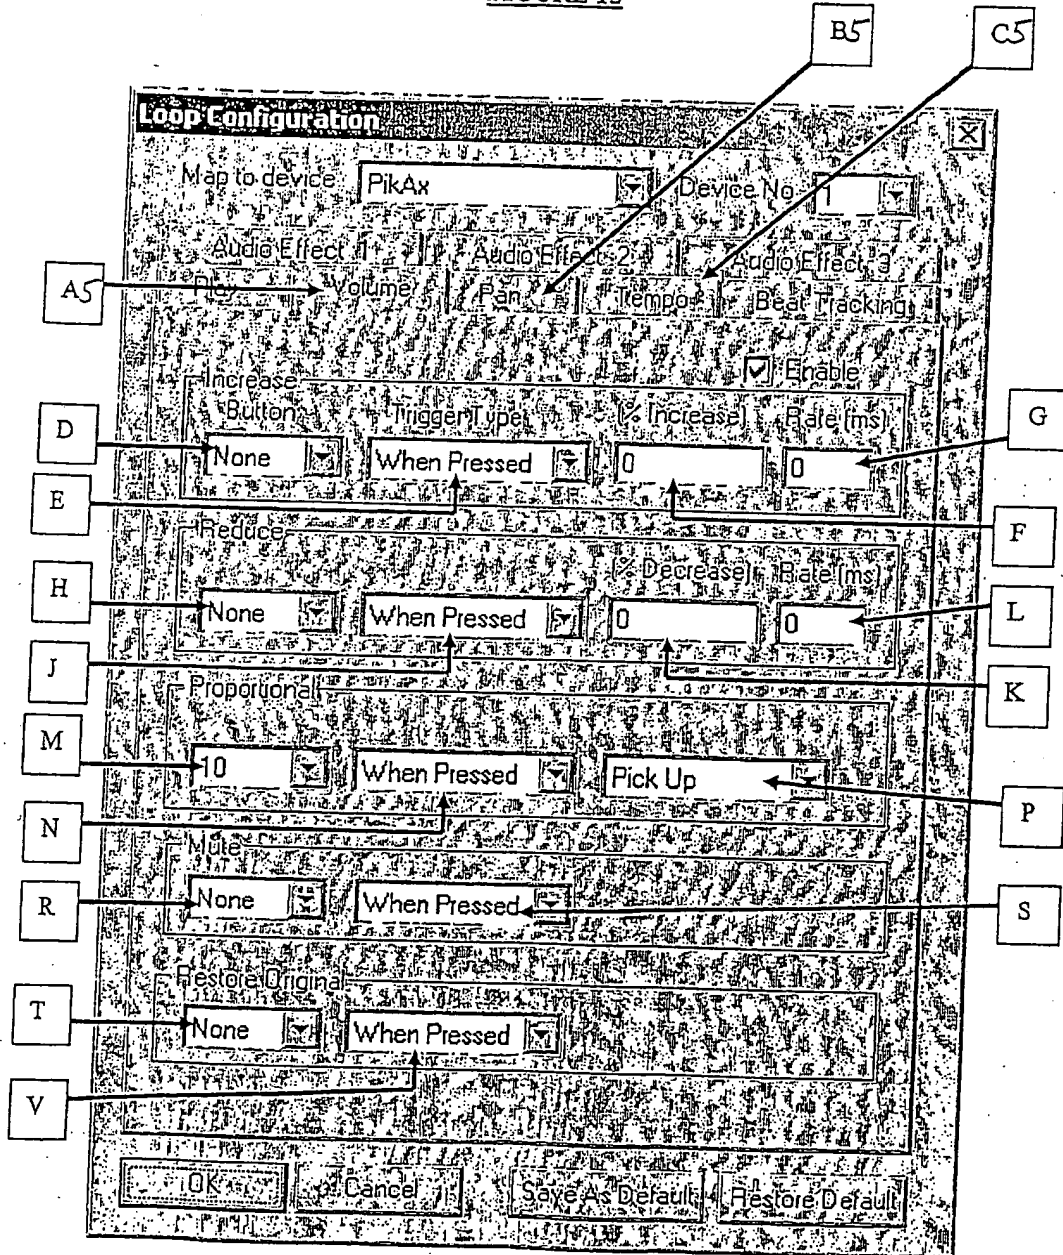 B5 C5
Loop Configuration
Map to device PikAx Device No 1
Audio Effect 1 Audio Effect 2 Audio Effect 3
A5
Play Volume Pan Tempo Beat Tracking
Enable
Increase
Button Trigger Type (% Increase) Rate (ms)
D None When Pressed 0 0 G
E F
Reduce
(% Decrease) Rate (ms)
H None When Pressed 0 0 L
J K
Proportional
M 10 When Pressed Pick Up
N P
Mute
R None When Pressed S
Restore Original
T None When Pressed
V
OK Cancel Save As Default Restore Default